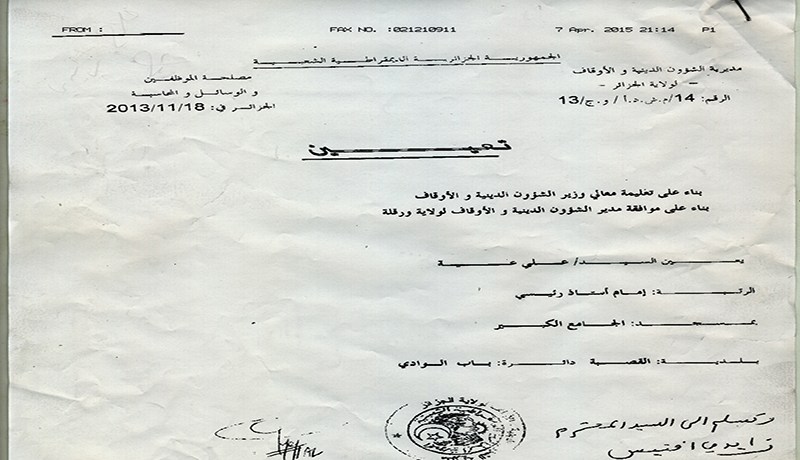 FROM : FAX NO. :021210911 7 Apr. 2015 21:14 P1
الجمهوريـة الجزائريـة الديمقراطيـة الشعبيـة
مديرية الشؤون الدينية و الأوقاف
– لولاية الجزائر –
الرقم: 14/م.ش.د.أ / و.ج/13
مصلحـة الموظفـين
و الوسائـل و المحاسبة
الجزائـر في: 2013/11/18
تعييـــــن
بناء على تعليمة معالي وزير الشؤون الدينية و الأوقاف
بناء على موافقة مدير الشؤون الدينية و الأوقاف لولاية ورقلة
يعـــين السيـــد/ علـــي عيـــة
الرتبـــة: إمـام أستـاذ رئيسـي
بمسجـــد: الجامـع الكبيـر
بلديـــة: القصبـة دائـرة: بـاب الـوادي
وتسلم الى السيد المحترم